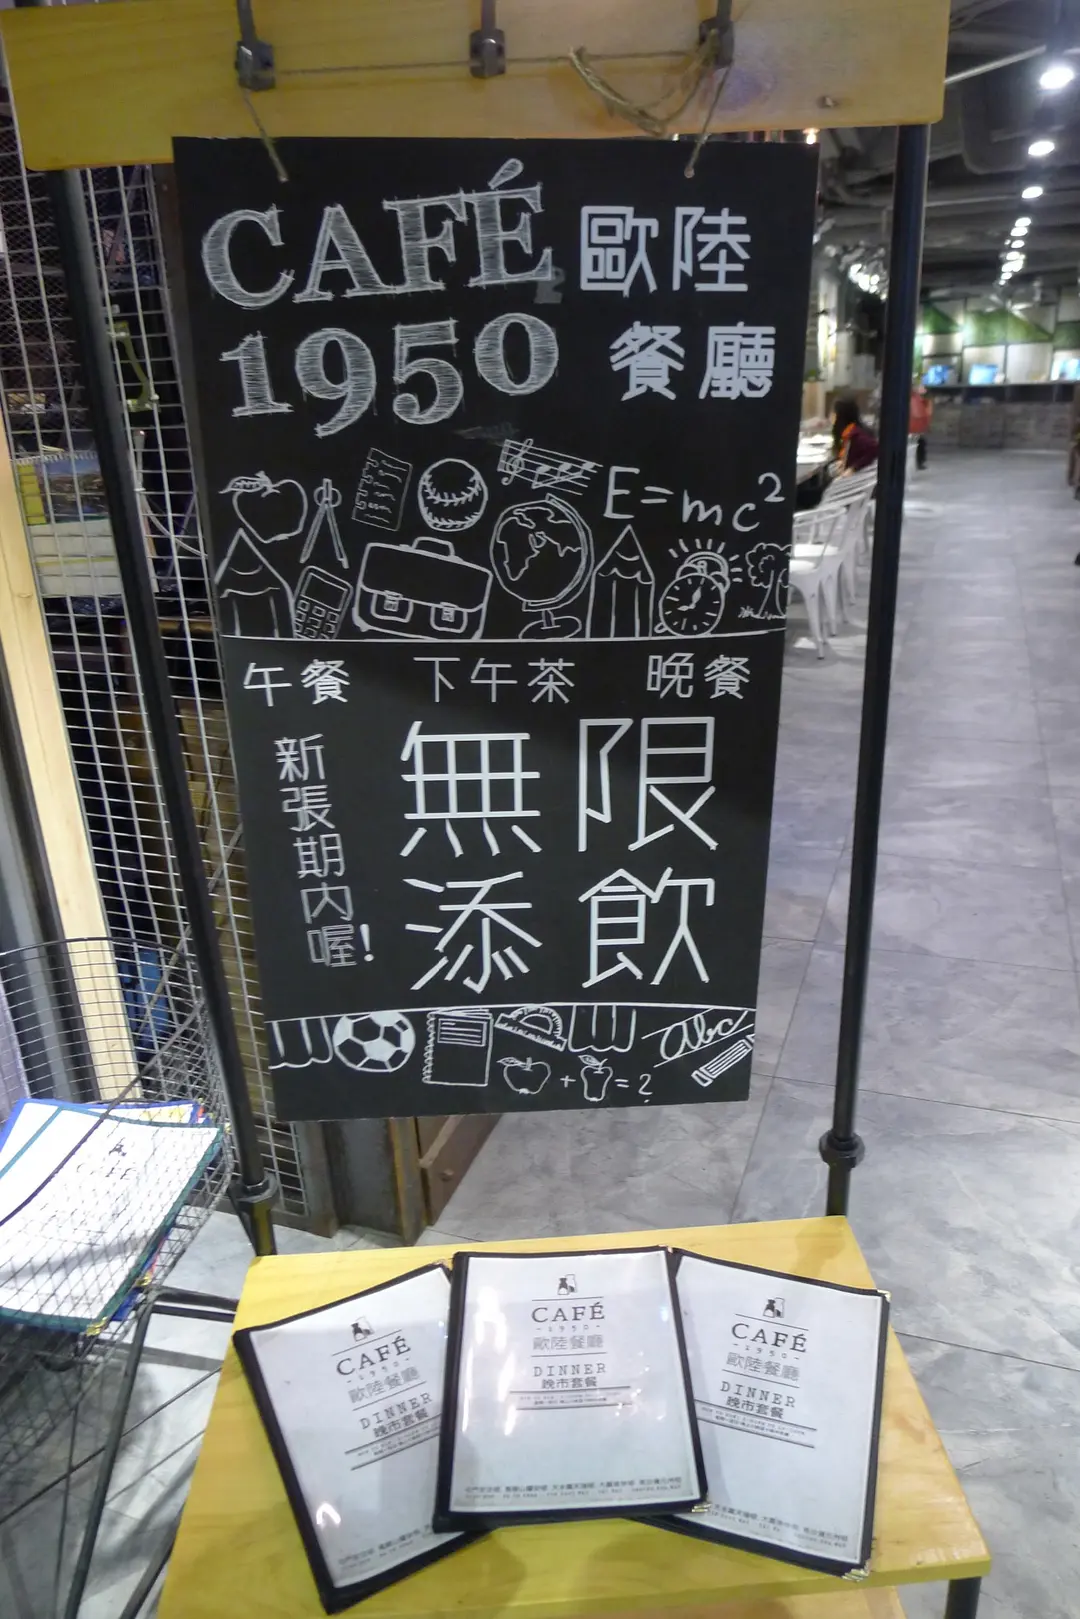 CAFÉ 歐陸
1950 餐廳
E=mc²
午餐 下午茶 晚餐
新張期內喔!
無限
添飲
abc
+ = ?
CAFÉ
CAFÉ
-1950-
歐陸餐廳
DINNER
晚市套餐
CAFÉ
-1950-
歐陸餐廳
DINNER
晚市套餐
CAFÉ
-1950-
歐陸餐廳
DINNER
晚市套餐